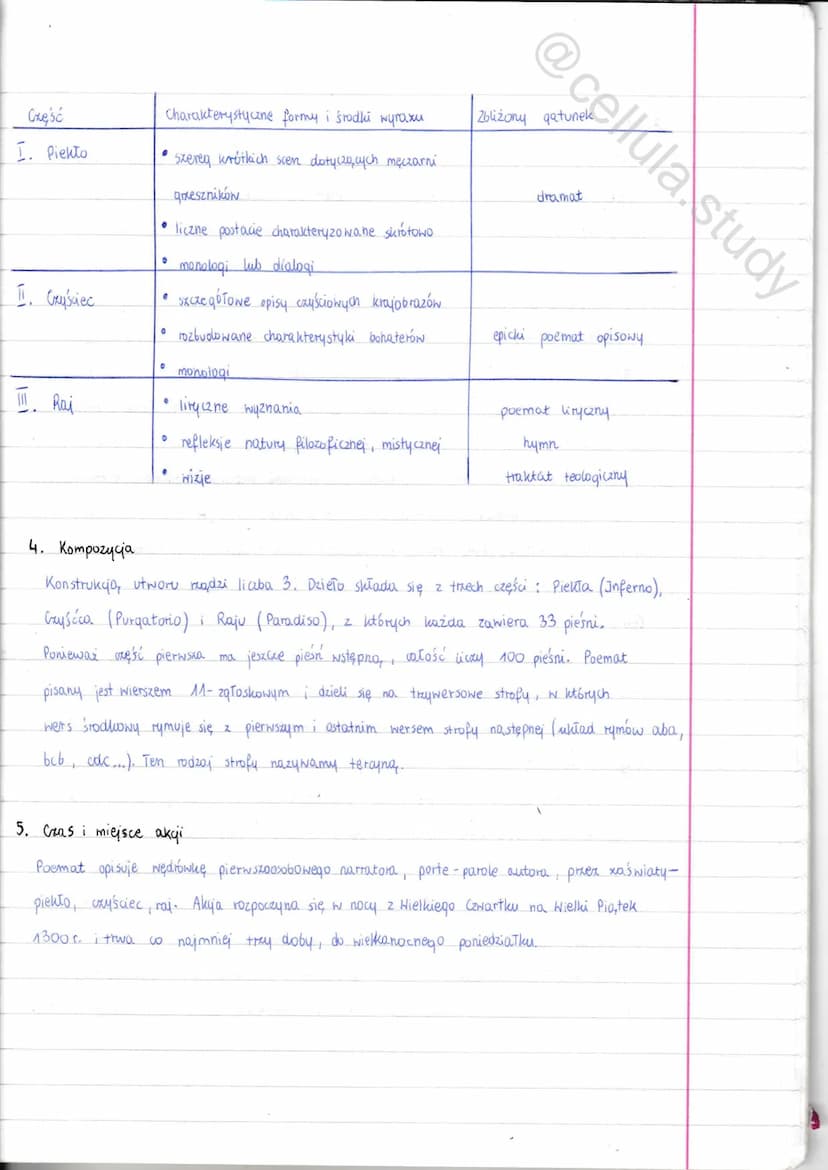 @cellula.study
Część Charakterystyczne formy i środki wyrazu Zbliżony gatunek
I. Piekło • szereg krótkich scen dotyczących męczarni
grzeszników dramat
• liczne postacie charakteryzowane skrótowo
• monologi lub dialogi
II. Czyściec • szczegółowe opisy czyśćowych krajobrazów
• rozbudowane charakterystyki bohaterów epicki poemat opisowy
• monologi
III. Raj • liryczne wyznania poemat liryczny
• refleksje natury filozoficznej, mistycznej hymn
• wizje traktat teologiczny
4. Kompozycja
Konstrukcją utworu rządzi liczba 3. Dzieło składa się z trzech części : Piekła (Inferno),
Czyśćca (Purgatorio) i Raju (Paradiso), z których każda zawiera 33 pieśni.
Ponieważ część pierwsza ma jeszcze pieśń wstępną, całość liczy 100 pieśni. Poemat
pisany jest wierszem 11-zgłoskowym i dzieli się na trzywersowe strofy, w których
wers środkowy rymuje się z pierwszym i ostatnim wersem strofy następnej (układ rymów aba,
bcb, cdc...). Ten rodzaj strofy nazywamy tercyną.
5. Czas i miejsce akcji
Poemat opisuje wędrówkę pierwszoosobowego narratora, porte-parole autora, przez zaświaty-
piekło, czyściec, raj. Akcja rozpoczyna się w nocy z Wielkiego Czwartku na Wielki Piątek
1300 r. i trwa co najmniej trzy doby, do wielkanocnego poniedziałku.